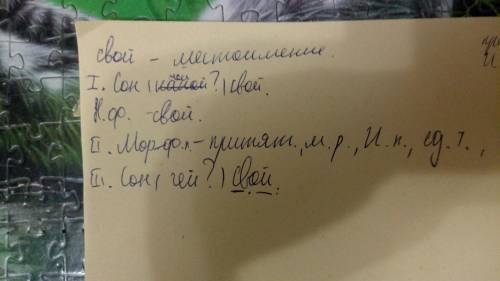 свой - местоимение.
I. Сон (чей?) свой.
Н.ф. - свой.
II. Морф.п. - притяж., м.р., И.п., ед.ч.,
III. Сон (чей?) свой.